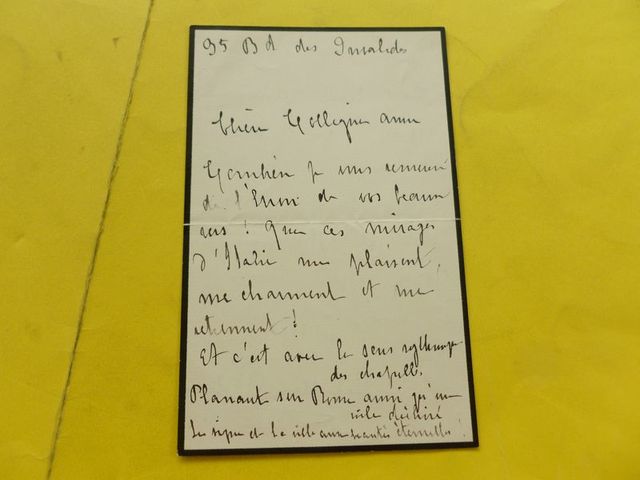 95 Bd des Invalides
Chère Collègue amie
Combien je vous remercie
de l'Envoi de vos beaux
vers ! Que ces mirages
d'Italie me plaisent,
me charment et me
retiennent !
Et c'est avec le sens
des chapelles
Planant sur Rome ainsi qu'un
voile déchiré
Les sept et la ville aux beautés éternelles !